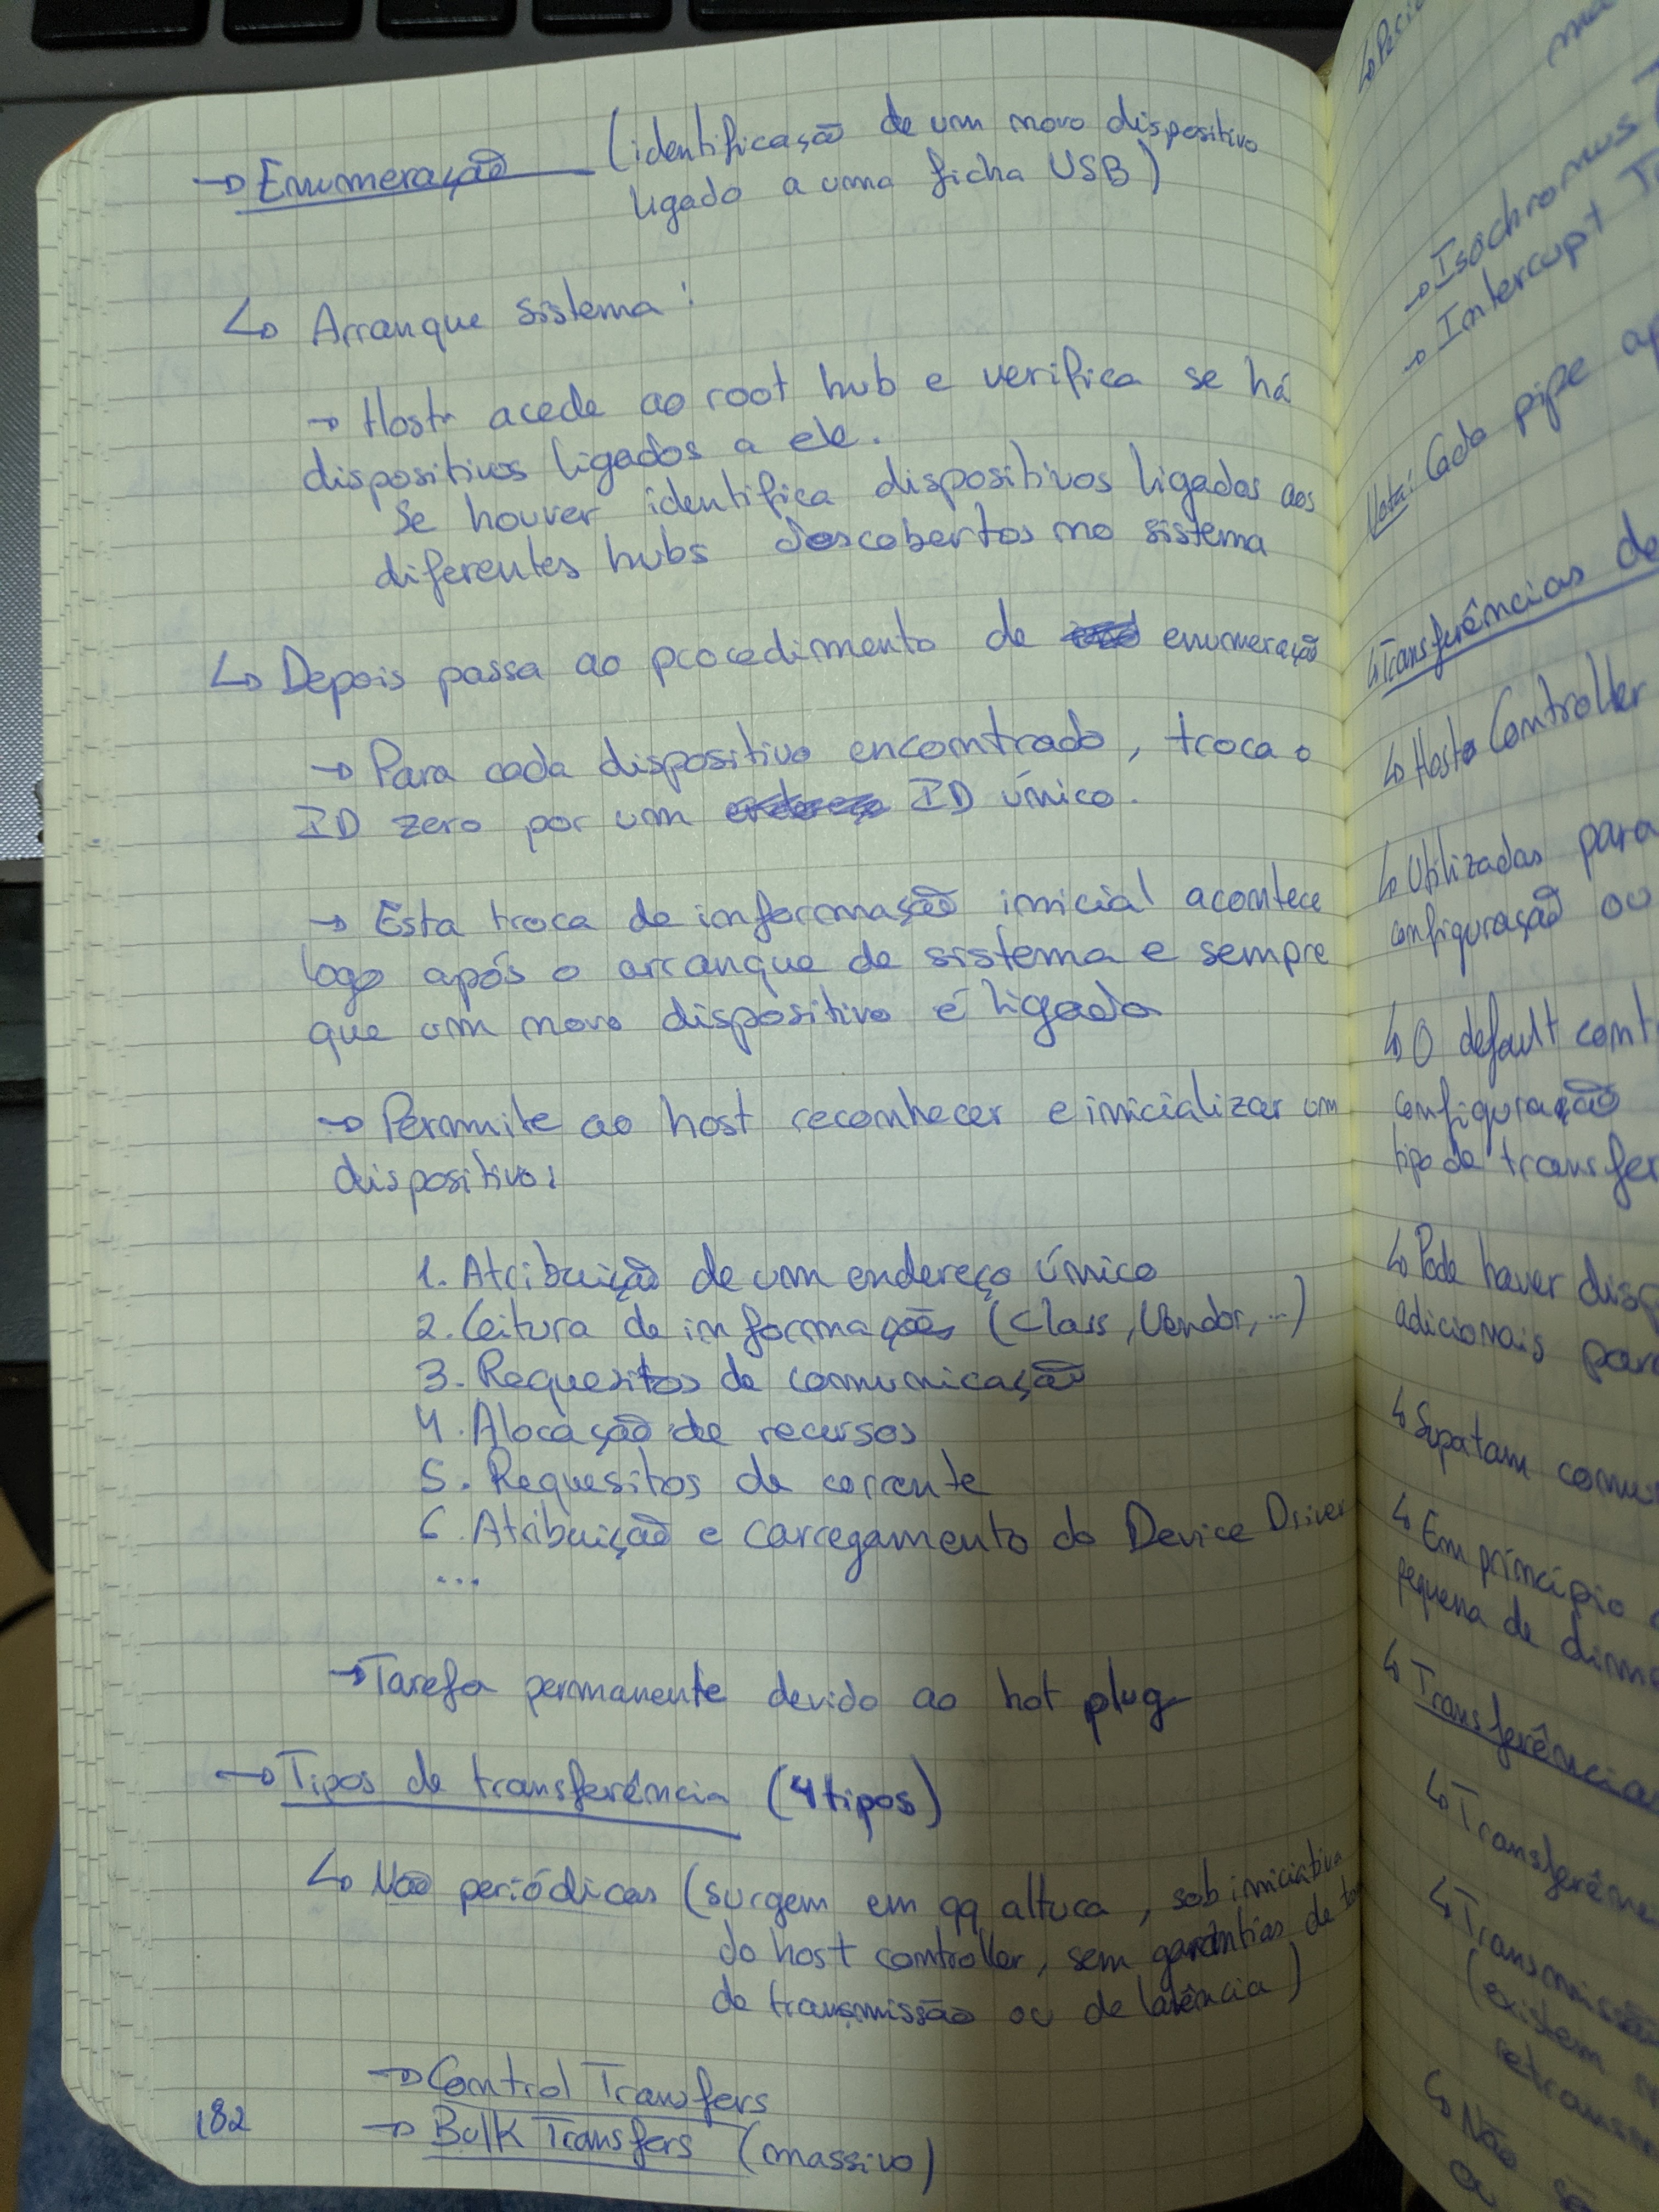 → Enumeração (identificação de um novo dispositivo
ligado a uma ficha USB)
↳ Arranque sistema:
→ Host acede ao root hub e verifica se há
dispositivos ligados a ele.
Se houver identifica dispositivos ligados aos
diferentes hubs descobertos no sistema
↳ Depois passa ao procedimento de enumeração
→ Para cada dispositivo encontrado, troca o
ID zero por um ID único.
→ Esta troca de informação inicial acontece
logo após o arranque de sistema e sempre
que um novo dispositivo é ligado
→ Permite ao host reconhecer e inicializar um
dispositivo:
1. Atribuição de um endereço único
2. Leitura de informações (Class, Vendor, ...)
3. Requesitos de comunicação
4. Alocação de recursos
5. Requesitos de corrente
6. Atribuição e carregamento do Device Driver
...
→ Tarefa permanente devido ao hot plug
→ Tipos de transferência (4 tipos)
↳ Não periódicas (surgem em qq altura, sob iniciativa
do host controller, sem garantias de
de transmissão ou de latência)
→ Control Transfers
→ Bulk Transfers (massivo)
182
→ Isochronous
→ Interrupt
Nota: Cada pipe
↳ Transferências de
↳ Host Controller
↳ Utilizadas para
configuração ou
↳ O default
configuração
tipo de
↳ Pode haver
adicionais
↳ Suportam
↳ Em princípio
pequena de
↳ Transferências
↳
↳
(existem
↳ Não